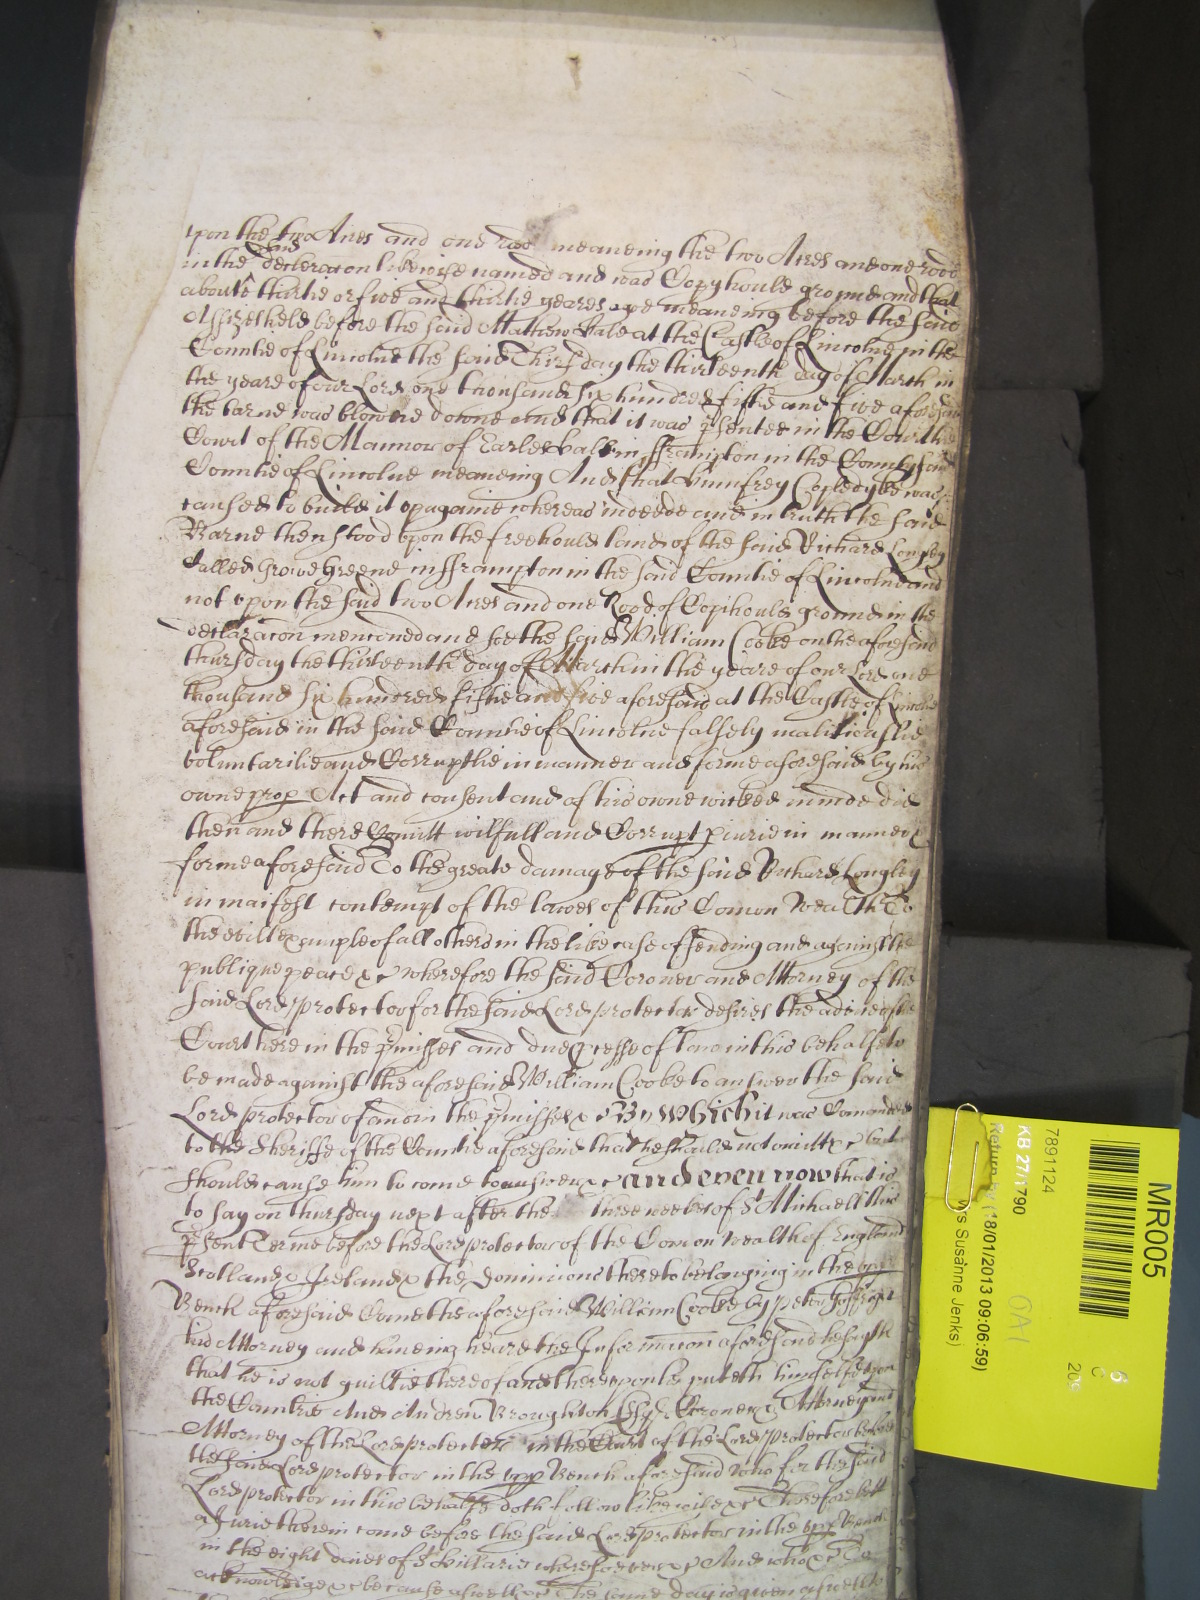 upon the two Acres and one rood meaneing the two Acres and one rood
in the declaracon likewise named and was Copyhould ground and that
about thirtie or five and thirtie yeares agoe meaneing before the said
Assizes helde before the said Mathew Hale at the Castle of Lincolne in the
Countie of Lincolne the said Thursday the thirteenth day of March in
the yeare of our Lord one thousand six hundred fiftie and five aforesaid
the barne was blowne downe and that it was psented in the Court the
Court of the Mannor of Earles hall in fframpton in the County said
Countie of Lincolne meaneing And that Humfrey Copledyke was
caused to build it up againe whereas indeede and in truth the said
Barne then stood upon the freehould land of the said Richard Longley
Called Growe Greene in fframpton in the said Countie of Lincolne and
not upon the said two Acres and one Rood of Copihould ground in the
declaracon menconed and soe the said William Cooke on the aforesaid
thursday the thirteenth day of March in the yeare of our Lord one
thousand six hundred fiftie and five aforesaid at the Castle of Lincolne
aforesaid in the said Countie of Lincolne falsely malitiouslie
voluntarilie and Corruptlie in manner and forme aforesaid by his
owne prop Act and consent and of his owne wicked minde did
then and there Comitt wilfull and Corrupt piurie in manner &
forme aforesaid To the greate damage of the said Richard Longley
in maifest contempt of the lawes of this Comon Wealth To
the evill example of all others in the like case offending and against the
publique peace &c wherefore the said Coroner and Attorney of the
said Lord protector for the said Lord protector desires the advice of the
Court here in the pmisses and due pcesse of law in this behalfe to
be made against the aforesaid William Cooke to answer the said
Lord protector of and in the pmisses &c By which it was Comanded
to the Sheriffe of the Countie aforesaid that he should not omitt &c but
should cause him to come to answer &c and even now that is
to say on thursday next after the three weekes of St Michaell this
psent Terme before the Lord protector of the Comon Wealth of England
Scotland & Ireland & the dominions thereto belonging in the upp
Bench aforesaid Come the aforesaid William Cooke by Peter
his Attorney and haveing heard the Informacon aforesaid he saith
that he is not guiltie thereof and thereupon he puteth himselfe upon
the Countrie And Andrew Broughton Esqr Coroner & Attorney and
Attorney of the Lord protector in the Court of the Lord protector before
the said Lord protector in the upp Bench aforesaid who for the said
Lord protector in this behalfe doth follow likewise &c Therefore lett
a Jurie therein come before the said Lord protector in the upp Bench
in the eight daies of St Hillarie wherefore &c And who &c To
acknowledge &c because aswell &c The same day is given aswell to
MR005
7891124
KB 27/1790
Return by (18/01/2013 09:06:59)
Susanne Jenks)
OA1
6
C